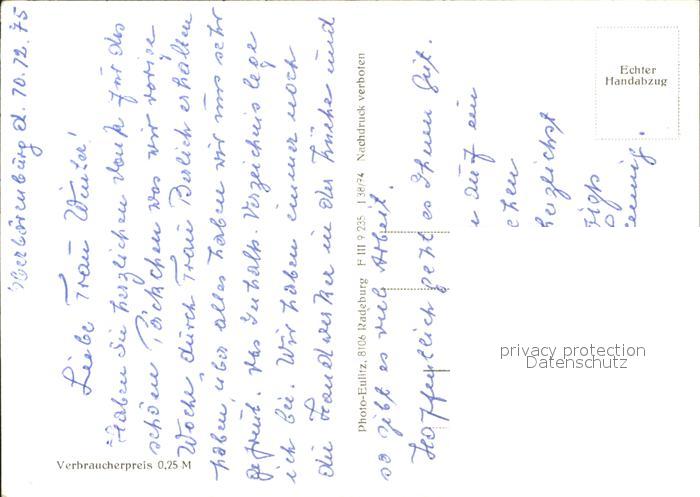 d. 10.12.75
Liebe Frau Winter!
Haben Sie herzlichen Dank für das
schöne Päckchen was wir vorige
Woche durch Frau erhalten
haben, über alles haben wir uns sehr
gefreut. Das Inhalts-Verzeichnis lege
ich bei. Wir haben immer noch
die Handwerker in der Küche und
so gibt es viel Arbeit.
Hoffentlich geht es Ihnen gut.
auf ein
chen
herzlichst
Verbraucherpreis 0,25 M
Photo-Eulitz, 8106 Radeburg F III 9 235 I 38/74 Nachdruck verboten
Echter
Handabzug
privacy protection
Datenschutz